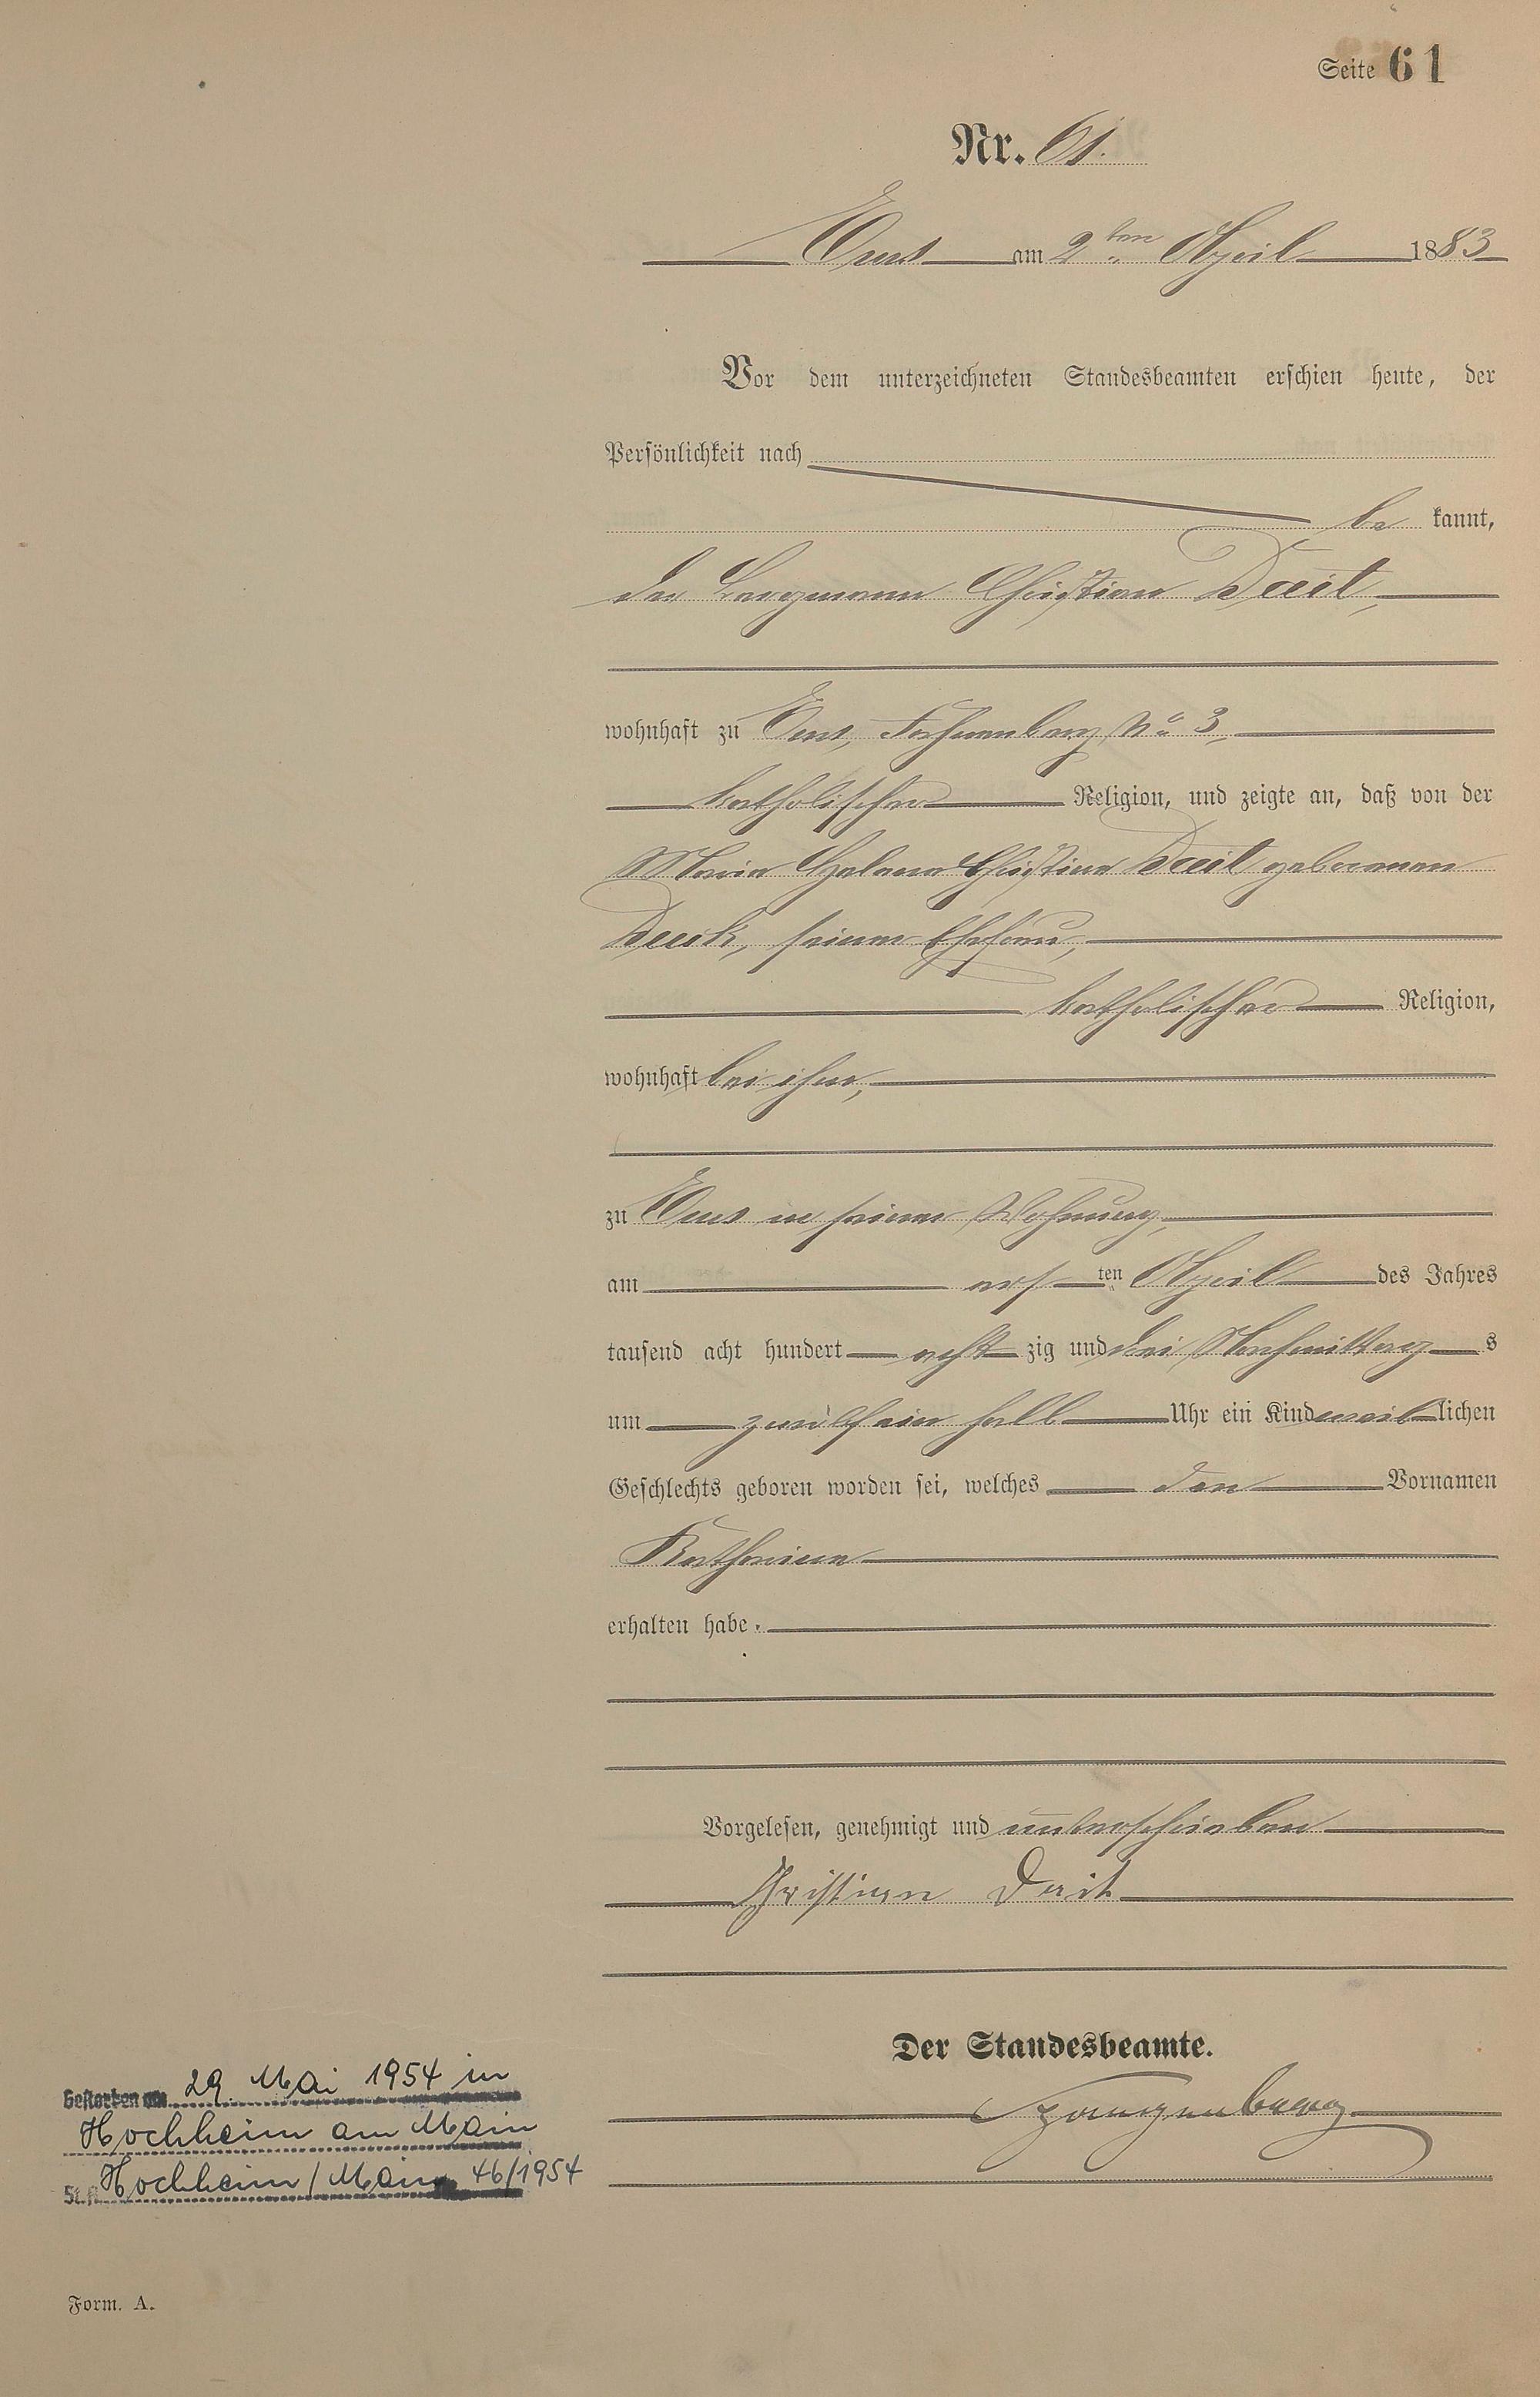 Seite 61
Nr. 61.
Ems am 2ten April 1883
Vor dem unterzeichneten Standesbeamten erschien heute, der
Persönlichkeit nach
be kannt,
der Bergmann Christian Deeit,
wohnhaft zu Ems, No 3,
katholischer Religion, und zeigte an, daß von der
Maria Helena Christina Deeit geborenen
seiner Ehefrau,
katholischer Religion,
wohnhaft bei ihm,
zu Ems in seiner Wohnung,
am ersten April des Jahres
tausend acht hundert acht zig und drei Nachmittag s
um zwölf ein halb Uhr ein Kind weiblichen
Geschlechts geboren worden sei, welches den Vornamen
Katharina
erhalten habe.
Vorgelesen, genehmigt und unterschrieben
Christian Deit
Der Standesbeamte.
Spangenberg
Gestorben am 29. Mai 1954 in
Hochheim am Main
St.A. Hochheim/Main 46/1954
Form. A.